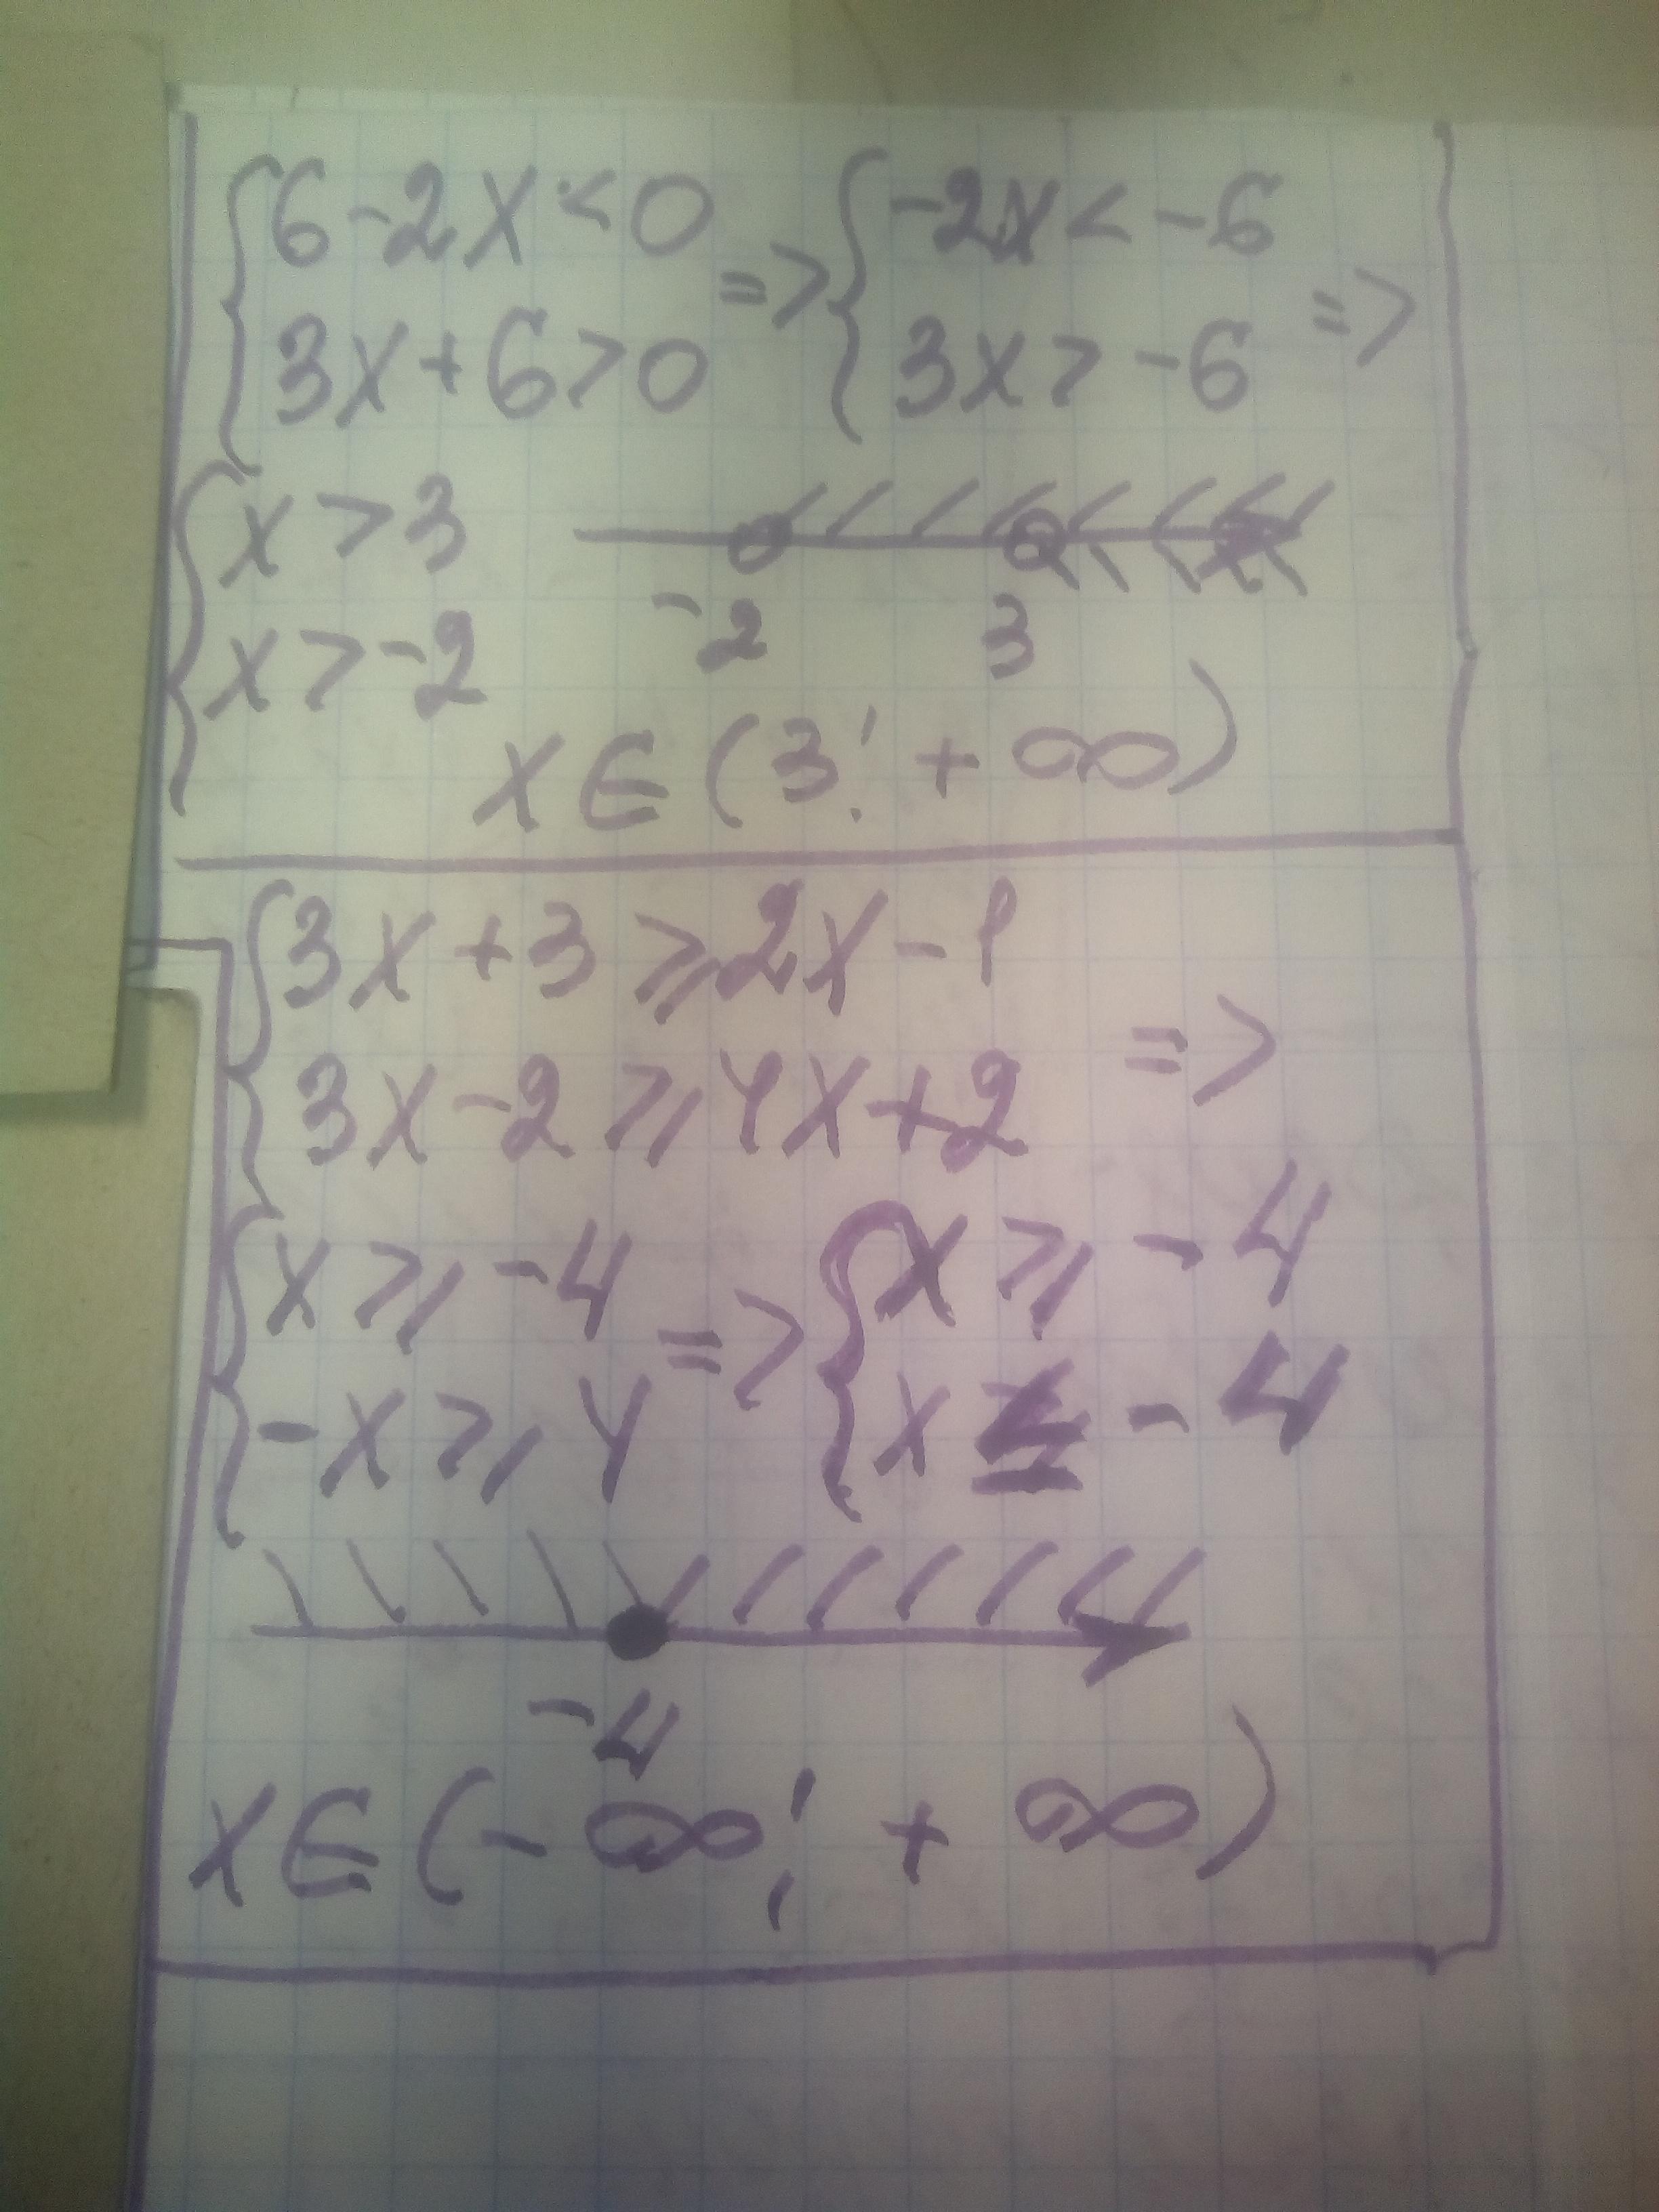 {6-2x<0 => {-2x<-6 =>
{3x+6>0 {3x>-6
{x>3
{x>-2
-2 3
x∈(3; +∞)
{3x+3⩾2x-1 =>
{3x-2⩾4x+2
{x⩾-4 => {x⩾-4
{-x⩾4 {x≤-4
-4
x∈(-∞; +∞)